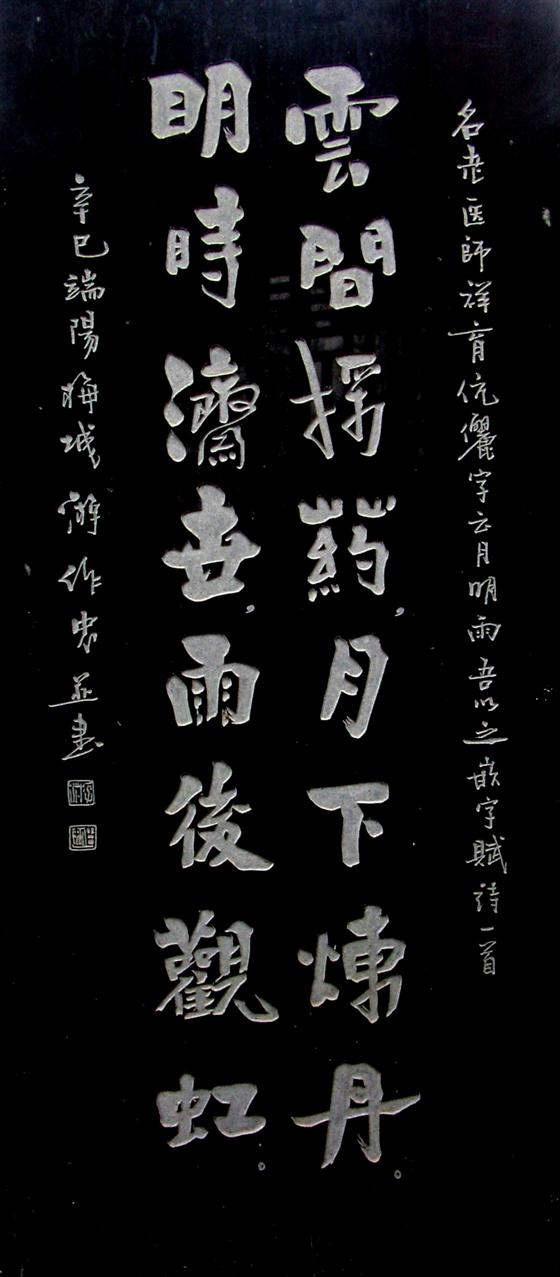 名老医師祥育伉儷字云月明雨吾以之嵌字賦詩一首
雲間採药，月下煉丹。
明時濟世，雨後觀虹。
辛巳端陽梅城解作忠並書